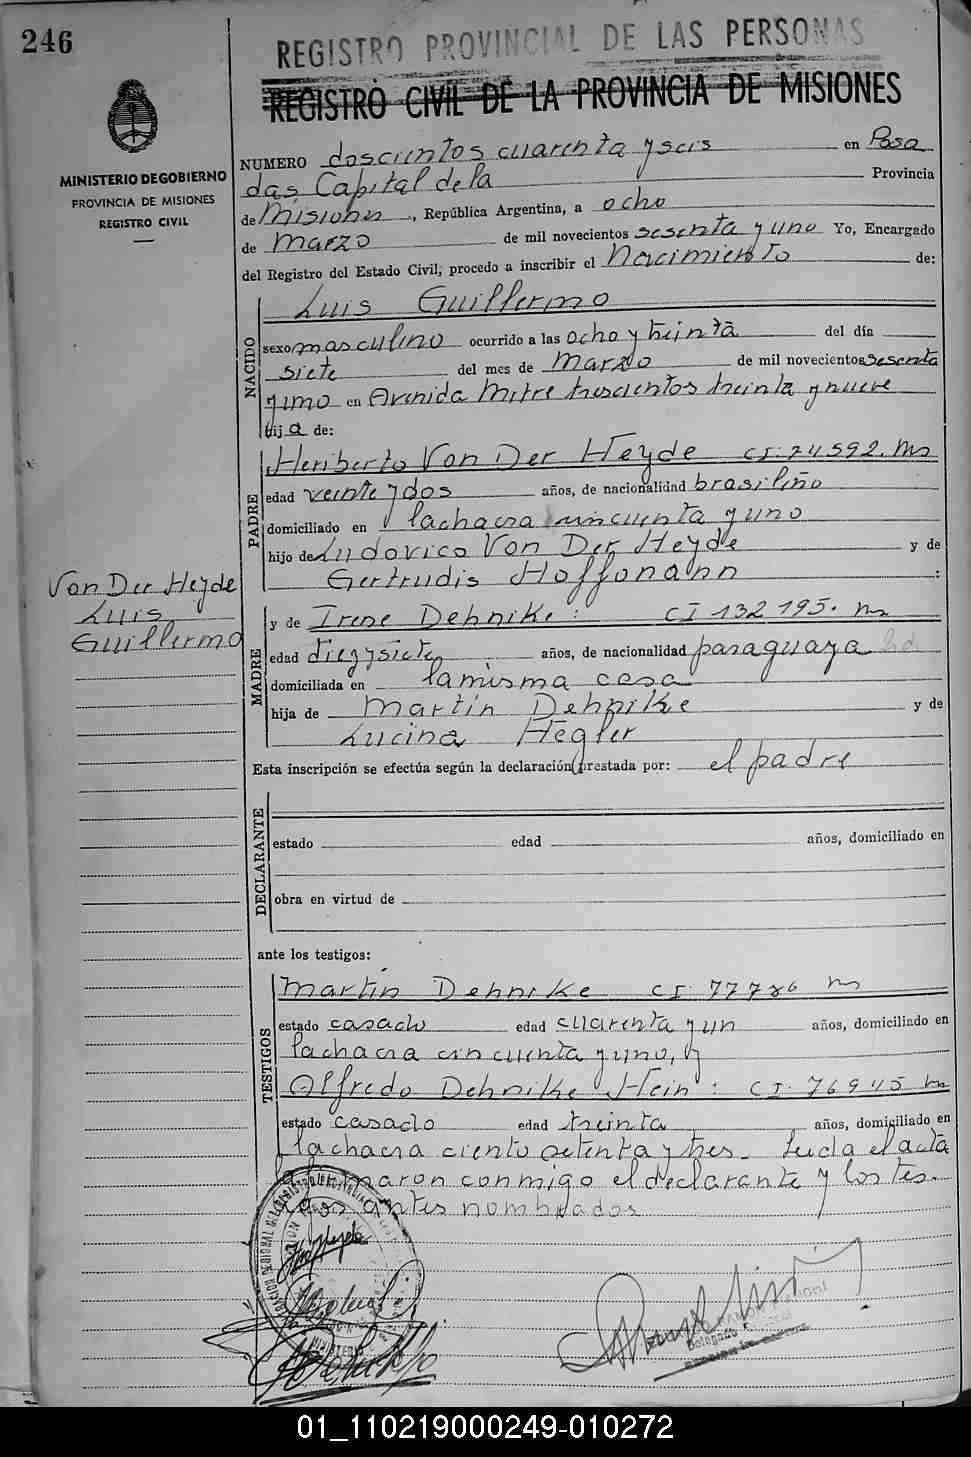 246
REGISTRO PROVINCIAL DE LAS PERSONAS
REGISTRO CIVIL DE LA PROVINCIA DE MISIONES
MINISTERIO DE GOBIERNO
PROVINCIA DE MISIONES
REGISTRO CIVIL
NUMERO doscientos cuarenta y seis en Posa
das Capital de la Provincia
de Misiones, República Argentina, a ocho
de Marzo de mil novecientos sesenta y uno Yo, Encargado
del Registro del Estado Civil, procedo a inscribir el Nacimiento de:
NACIDO
Luis Guillermo
sexo masculino ocurrido a las ocho y treinta del día
siete del mes de Marzo de mil novecientos sesenta
y uno en Avenida Mitre trescientos treinta y nueve
hijo de:
PADRE
Heriberto Von Der Heyde CI. 74592. Ms
edad veinte y dos años, de nacionalidad brasileño
domiciliado en la chacra cincuenta y uno
hijo de Ludovico Von Der Heyde y de
Gertrudis Hoffmann :
Von Der Heyde
Luis
Guillermo
MADRE
y de Irene Dehnike: CI 132195. Ms
edad diez y siete años, de nacionalidad paraguaya
domiciliada en la misma casa
hija de Martín Dehnike y de
Lucina Hegler
Esta inscripción se efectúa según la declaración prestada por: el padre
DECLARANTE
estado edad años, domiciliado en
obra en virtud de
ante los testigos:
TESTIGOS
Martín Dehnike CI. 77786 Ms
estado casado edad cuarenta y un años, domiciliado en
la chacra cincuenta y uno, y
Alfredo Dehnike Hein: CI. 76945 Ms
estado casado edad treinta años, domiciliado en
la chacra ciento setenta y tres. Leida el acta
la firmaron conmigo el declarante y los tes-
tigos antes nombrados
01_110219000249-010272